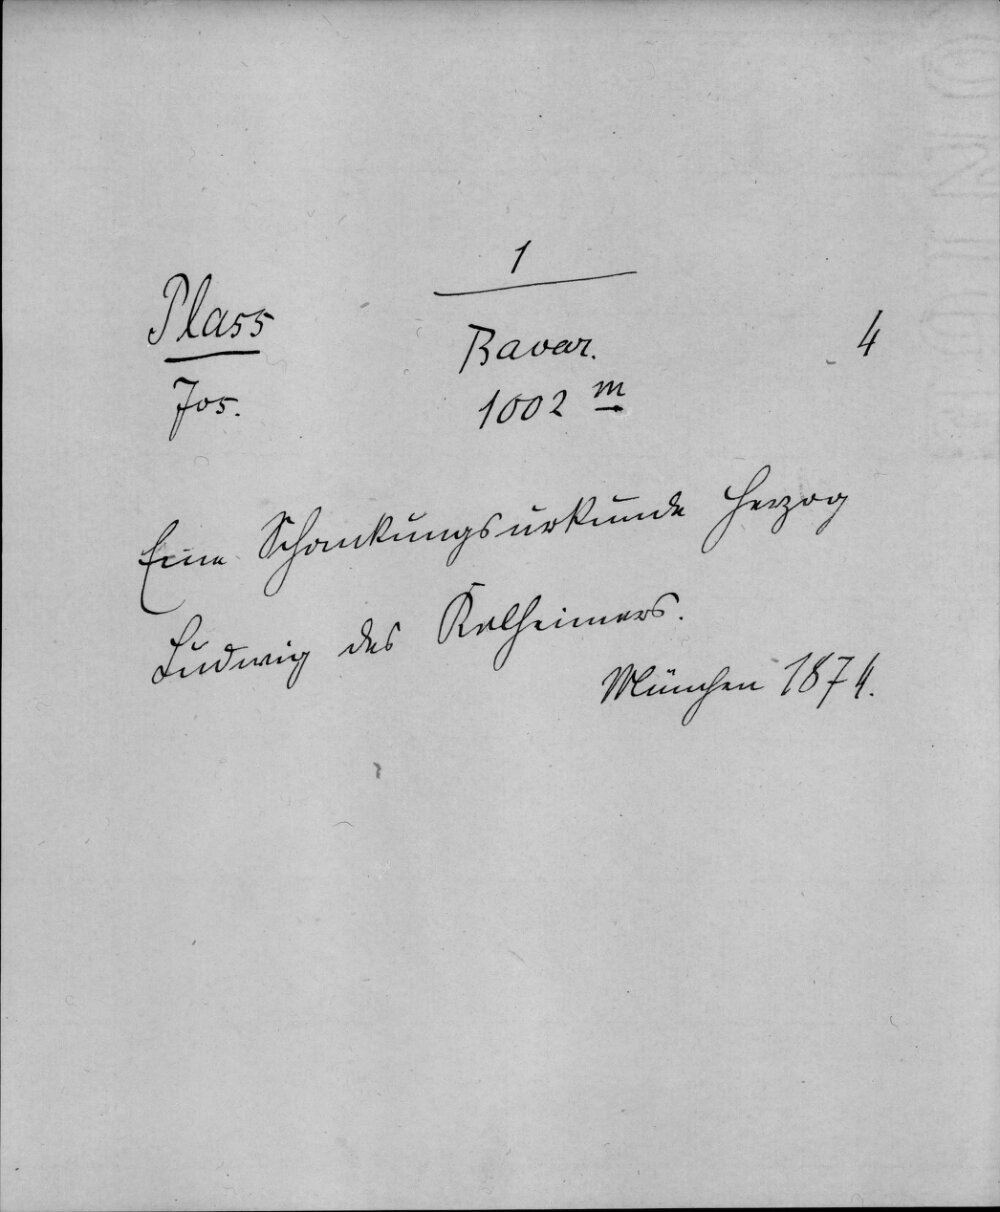 1
Plass Bavar. 4
Jos. 1002 m
Eine Schankungsurkunde Herzog
Ludwig des Kelheimers.
München 1874.